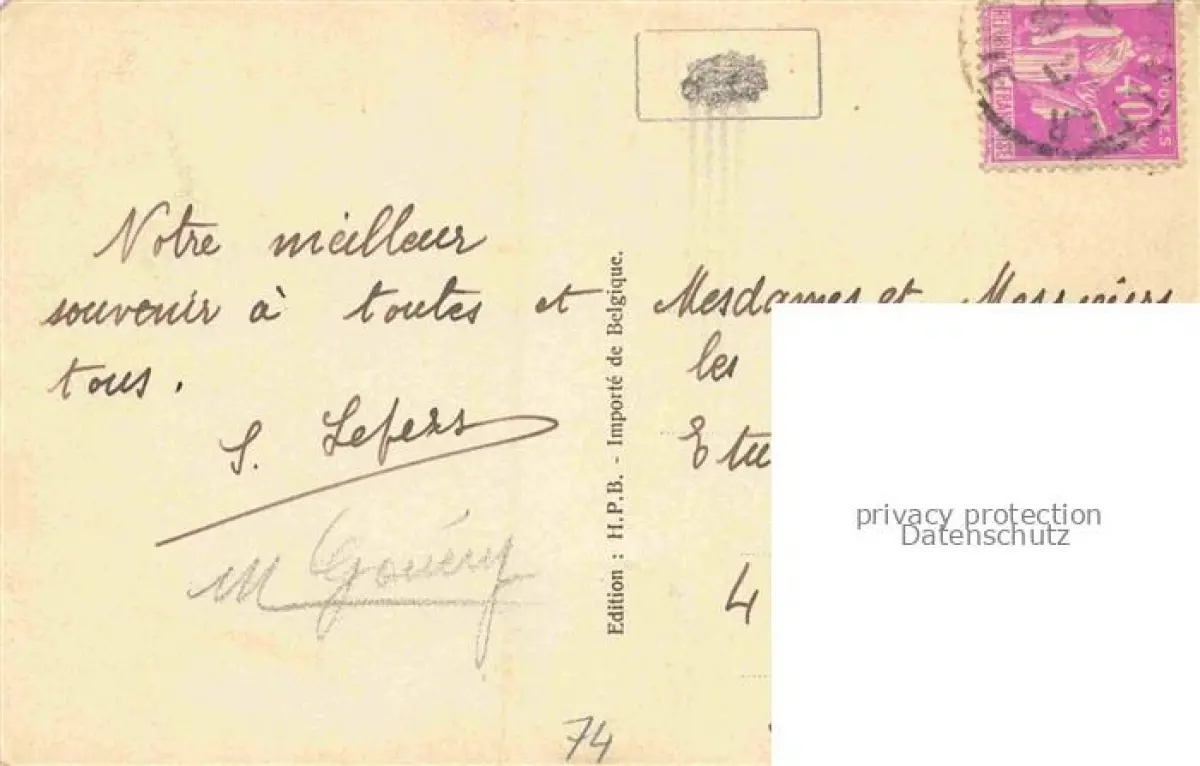 Notre meilleur
souvenir à toutes et
tous.
S. Lefers
M Gouéry
74
Edition : H.P.B. - Importé de Belgique.
POSTES
40c
Mesdames et Messieurs
les
Etu
4
privacy protection
Datenschutz